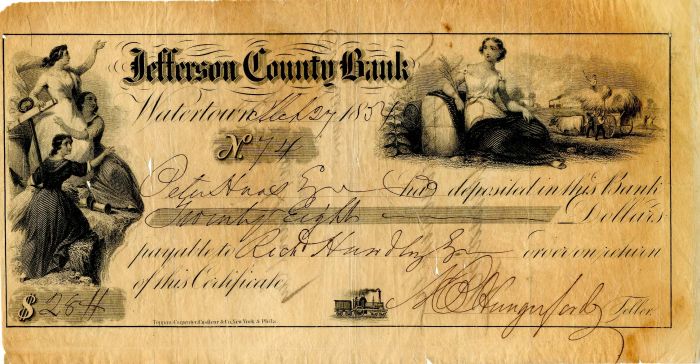 Jefferson County Bank
Watertown, Mch 27 1854
No. 74
Peter Haas Esq has deposited in this Bank
Twenty Eight Dollars
payable to Richd Hundley Esq or order on return
of this Certificate
$28 Teller
Toppan, Carpenter, Casilear & Co. New York & Phila.